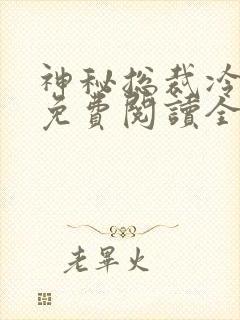 神秘总裁冷
免費閱讀全
老畢火